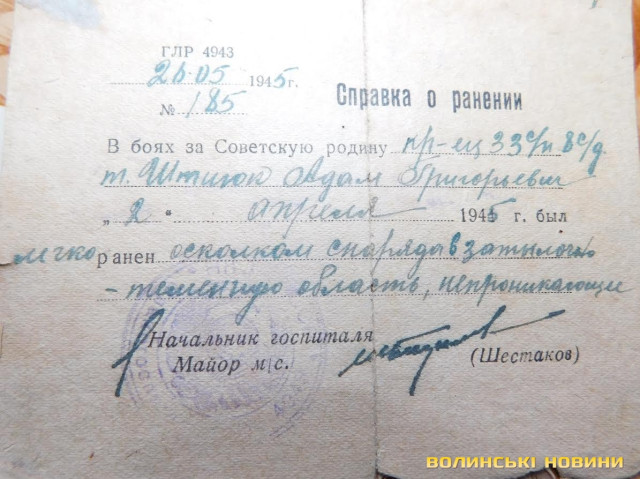 ГЛР 4943
26.05 1945г.
№ 185
Справка о ранении
В боях за Советскую родину кр-ец 33 с/п 8 с/д
т. Штиюк Адам Григорьевич
„ 2 " апреля 1945 г. был
легко ранен осколком снаряда в затылочно
-теменную область, непроникающее
Начальник госпиталя
Майор м/с. (Шестаков)
ВОЛИНСЬКІ НОВИНИ